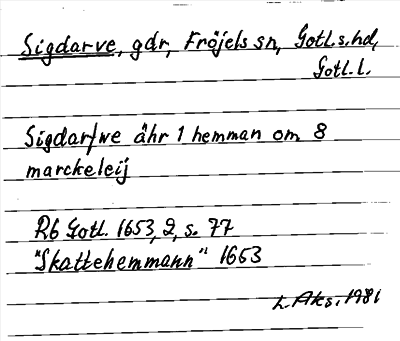 Sigdarve, gdr, Fröjels sn, Gotl.s.hd,
Gotl.l.
Sigdarfwe ähr 1 hemman om 8
marckeleij
Rb Gotl. 1653, 2, s. 77
"Skattehemmann" 1653
L. Aks. 1981